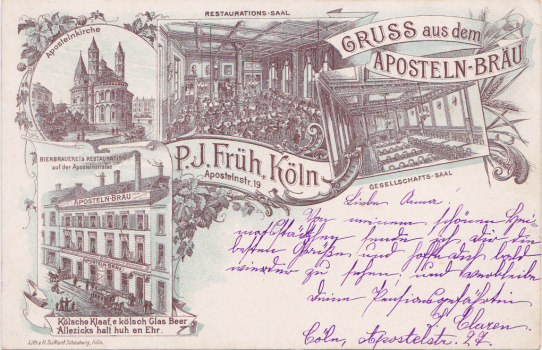 RESTAURATIONS-SAAL
Apostelnkirche
GRUSS aus dem
APOSTELN-BRÄU
BIERBRAUEREI & RESTAURATION
auf der Apostelnstrasse
P.J. Früh, Köln
Apostelnstr. 19
GESELLSCHAFTS-SAAL
APOSTELN-BRÄU
Kölsche Klaaf, e kölsch Glas Beer
Allezicks halt huh en Ehr.
Köln.
Liebe Anna!
Von meinem schönen Hei-
matstädtchen sende ich dir die
besten Grüße, und hoffe dich bald
wieder zu sehen, und verbleibe
deine Pensionsgefährtin
Claren.
Cöln, Apostelstr. 27.